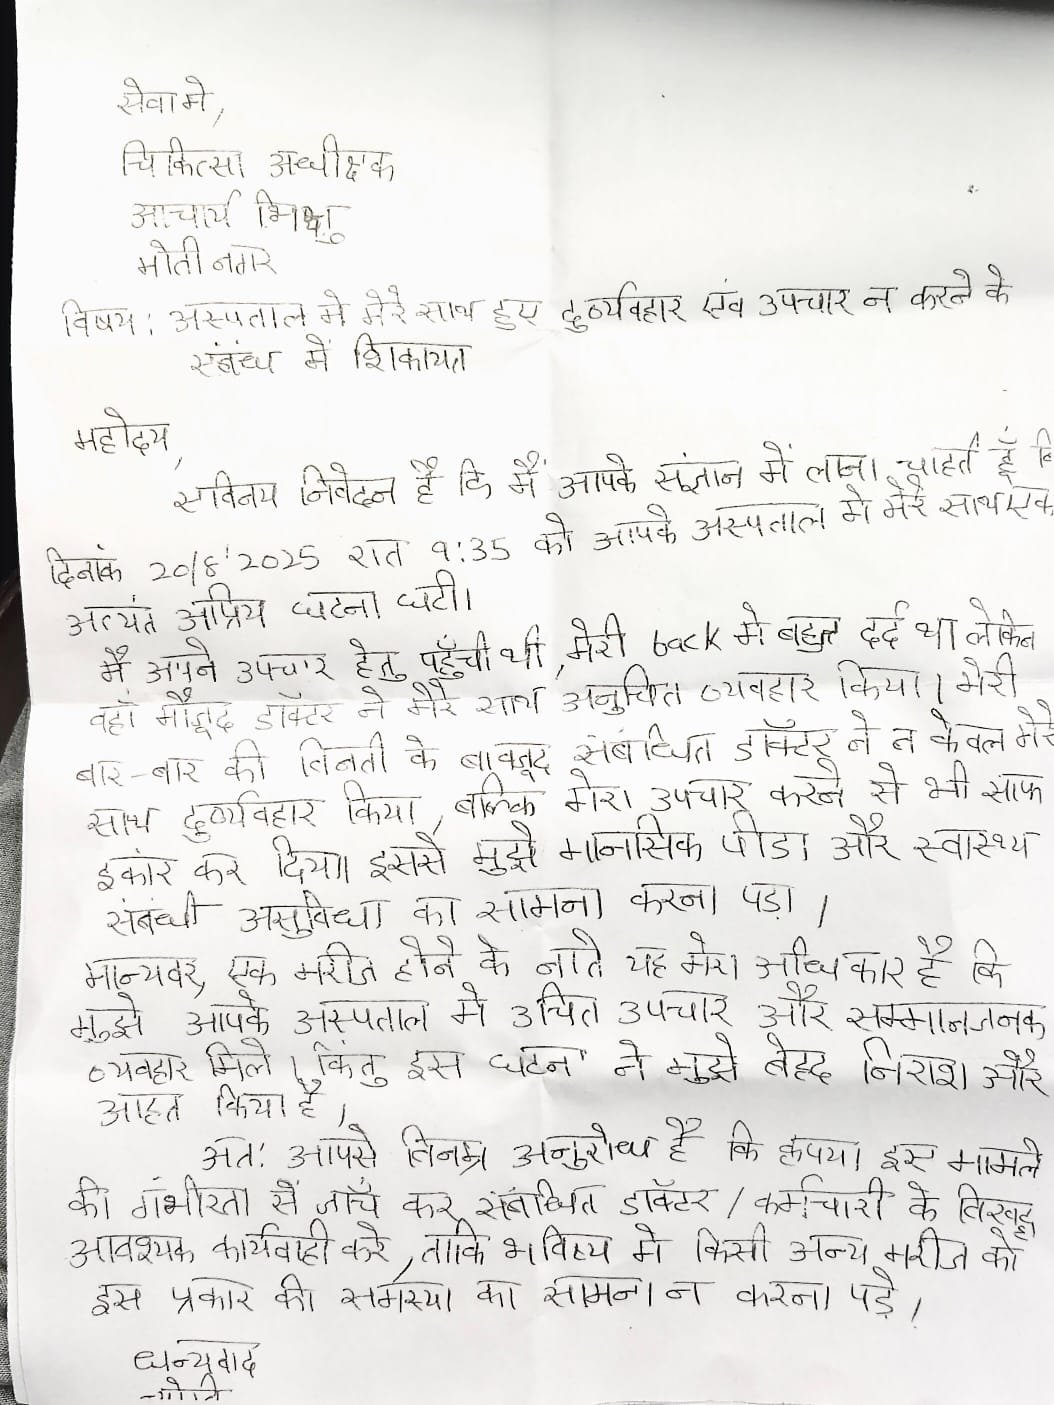 सेवा मे,
चिकित्सा अधीक्षक
आचार्य भिक्षु
मोती नगर
विषय: अस्पताल मे मेरे साथ हुए दुर्व्यवहार एंव उपचार न करने के
संबंध में शिकायत
महोदय,
सविनय निवेदन है कि मैं आपके संज्ञान में लाना चाहती हूँ
दिनांक 20/8/2025 रात 9:35 को आपके अस्पताल मे मेरे साथ एक
अत्यंत अप्रिय घटना घटी।
मै अपने उपचार हेतु पहुँची थी, मेरी back मे बहुत दर्द था लेकिन
वहाँ मौजूद डॉक्टर ने मेरे साथ अनुचित व्यवहार किया। मेरी
बार-बार की विनती के बावजूद संबंधित डॉक्टर ने न केवल मेरे
साथ दुर्व्यवहार किया, बल्कि मेरा उपचार करने से भी साफ
इंकार कर दिया। इससे मुझे मानसिक पीडा और स्वास्थ्य
संबंधी असुविधा का सामना करना पड़ा।
मान्यवर, एक मरीज होने के नाते यह मेरा अधिकार है कि
मुझे आपके अस्पताल मे उचित उपचार और सम्मानजनक
व्यवहार मिले। किंतु इस घटना ने मुझे बेहद निराश और
आहत किया है।
अत: आपसे विनम्र अनुरोध है कि कृपया इस मामले
की गंभीरता से जाँच कर संबंधित डॉक्टर / कर्मचारी के विरुद्ध
आवश्यक कार्यवाही करे, ताकि भविष्य मे किसी अन्य मरीज को
इस प्रकार की समस्या का सामना न करना पड़े।
धन्यवाद